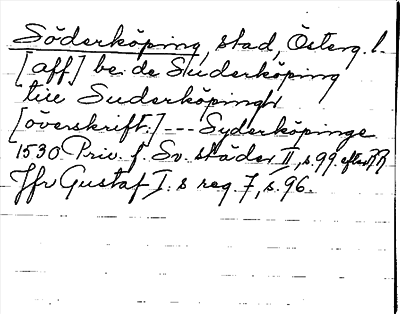 Söderköping, stad, Österg. l.
[aff] be. de Suderköping
till Suderköpingh
[överskrift.] --- Syderköpinge
1530 Priv. f. Sv. städer II, s. 99. efter RR
Jfr Gustaf I. s reg. 7, s. 96.